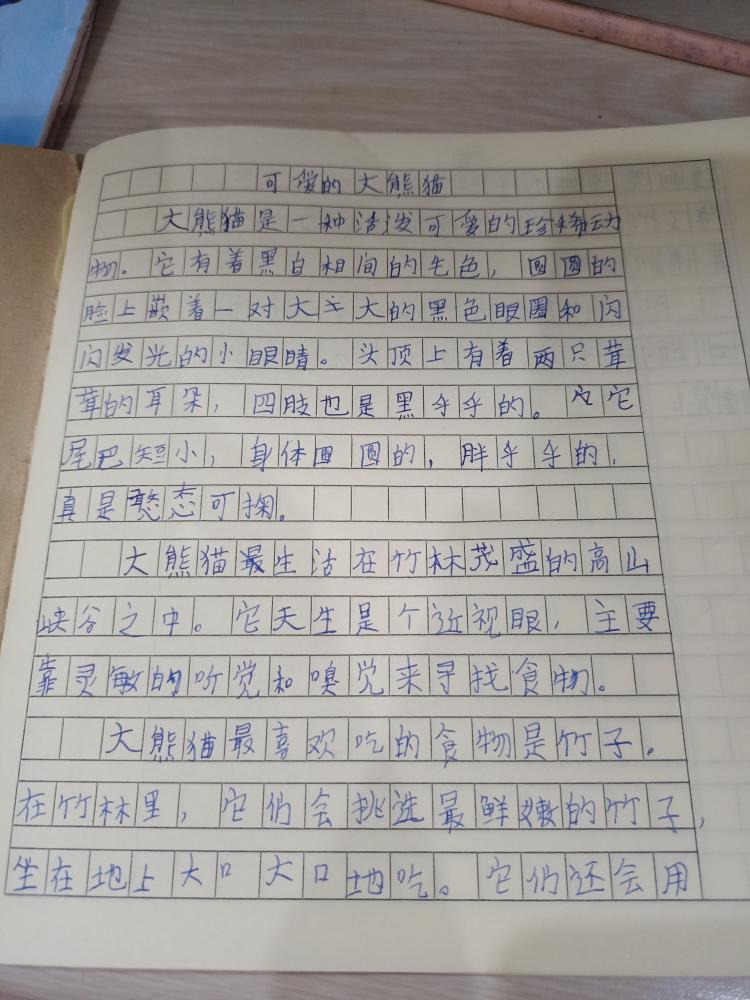 可爱的大熊猫
大熊猫是一种活泼可爱的珍稀动
物。它有着黑白相间的毛色，圆圆的
脸上嵌着一对大大的黑色眼圈和闪
闪发光的小眼睛。头顶上有着两只茸
茸的耳朵，四肢也是黑乎乎的。它
尾巴短小，身体圆圆的，胖乎乎的，
真是憨态可掬。
大熊猫最生活在竹林茂盛的高山
峡谷之中。它天生是个近视眼，主要
靠灵敏的听觉和嗅觉来寻找食物。
大熊猫最喜欢吃的食物是竹子。
在竹林里，它们会挑选最鲜嫩的竹子，
坐在地上大口大口地吃。它们还会用